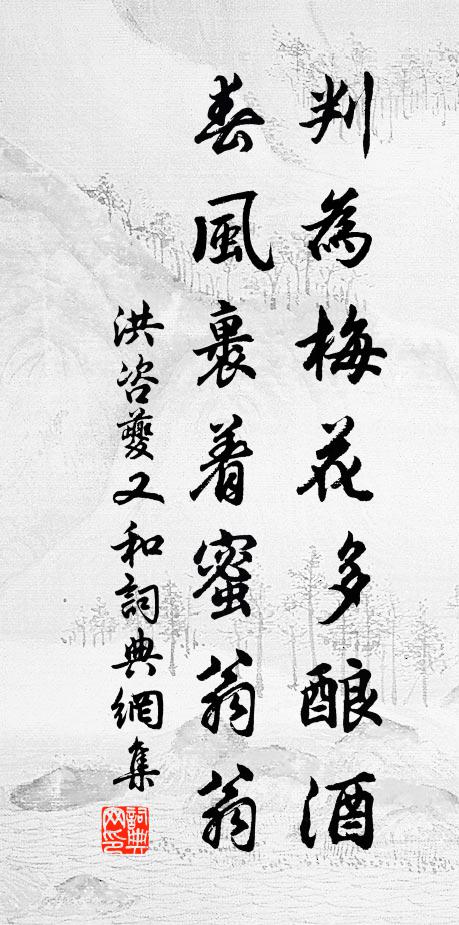 判為梅花多酿酒
春風裏着蜜翁翁
洪咨夔又和詞典網集
詞典網印